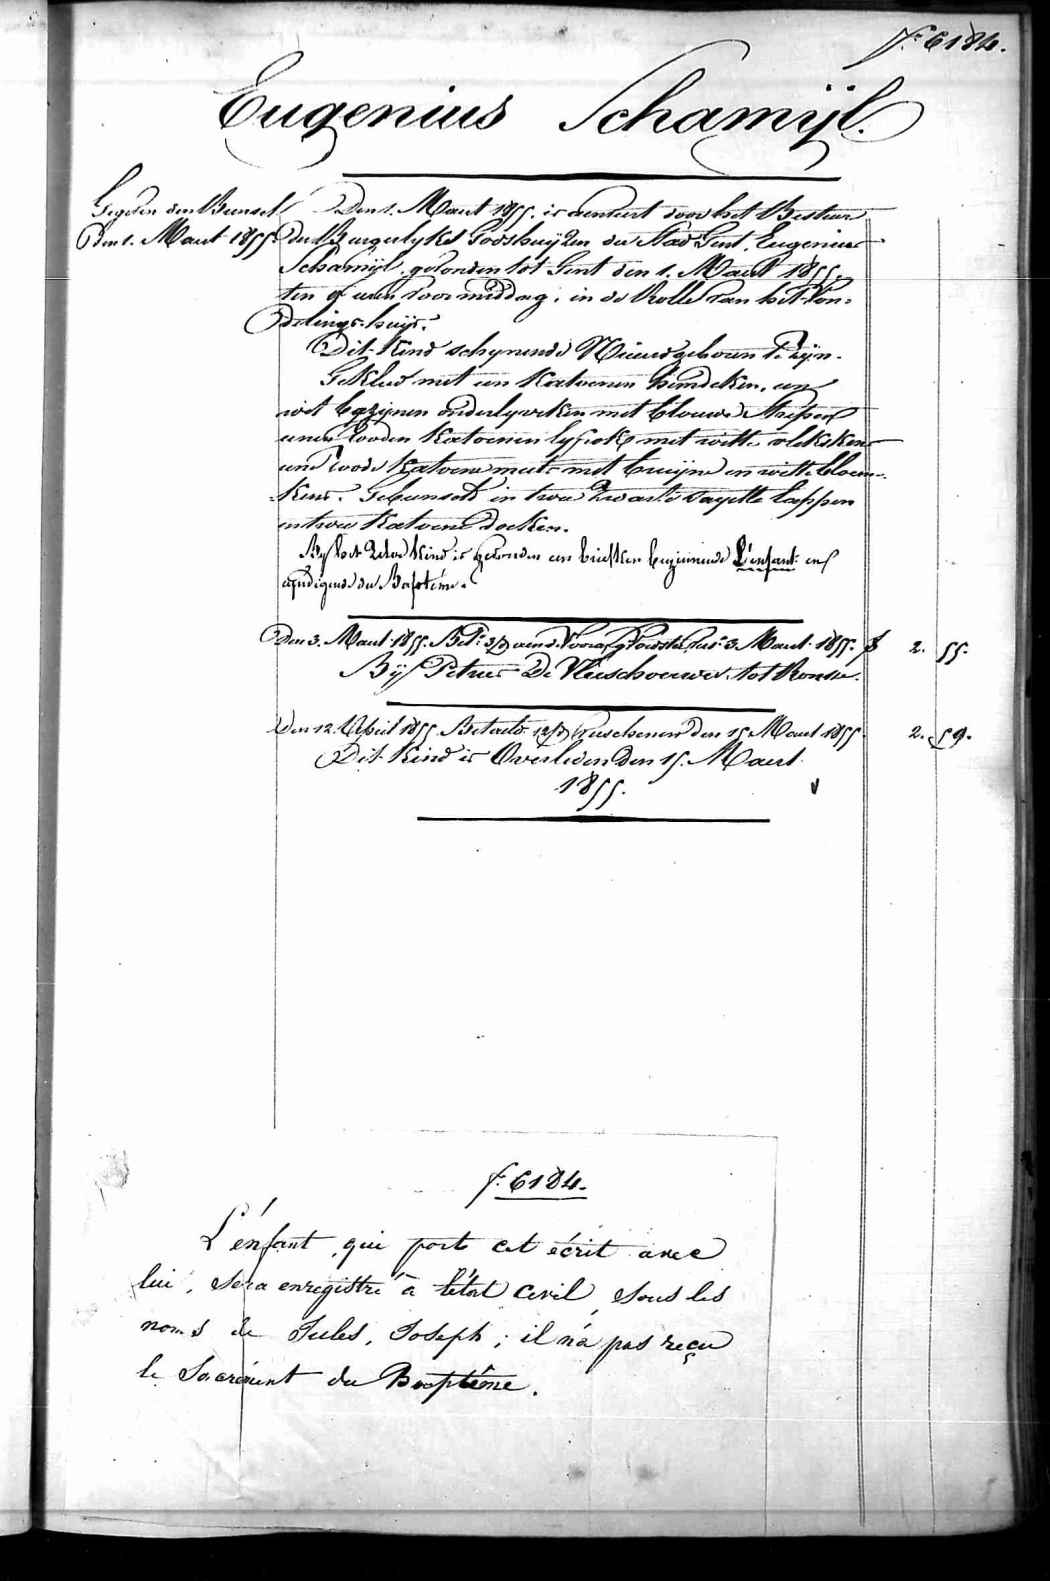 f.° 6184.
Eugenius Schamyl.
Gegeven den Bunsel
den 1. Maert 1855.
Den 1. Maert 1855. is aenveert door het Bestuer
der Burgerlyke Godshuyzen der Stad Gent, Eugenius
Schamyl, gevonden tot Gent den 1. Maert 1855.
ten of uren voormiddag, in de Rolle van het Von=
delings-huys.
Dit Kind schynende Nieuwgeboren te zyn.
Gekleed met een Katoenen hemdeken, een
wit onderlyveken met blauwe strepen
eenen rooden Katoenen met witte
eene roode Katoene muts met bruyne en witte bloem=
kens. Gebunseld in twee zwarte sayette lappen
en twee Katoene doeken.
By het zelve Kind is gevonden een briefken beginnende L'enfant en
eyndigende du Baptême.
Den 3. Maert 1855. Bet. 3 Maert 1855. f 2. 55.
By Petrus De Vleeschouwer, tot Ronsse.
Den 12. April 1855. Betaeld verschenen den 15 Maert 1855. 2. 59.
Dit Kind is Overleden den 15. Maert
1855.
f. 6184.
L'enfant qui porte cet écrit avec
lui, sera enregistré à l'état civil, sous les
noms de Jules, Joseph; il n'a pas reçu
le Sacrément du Baptême.